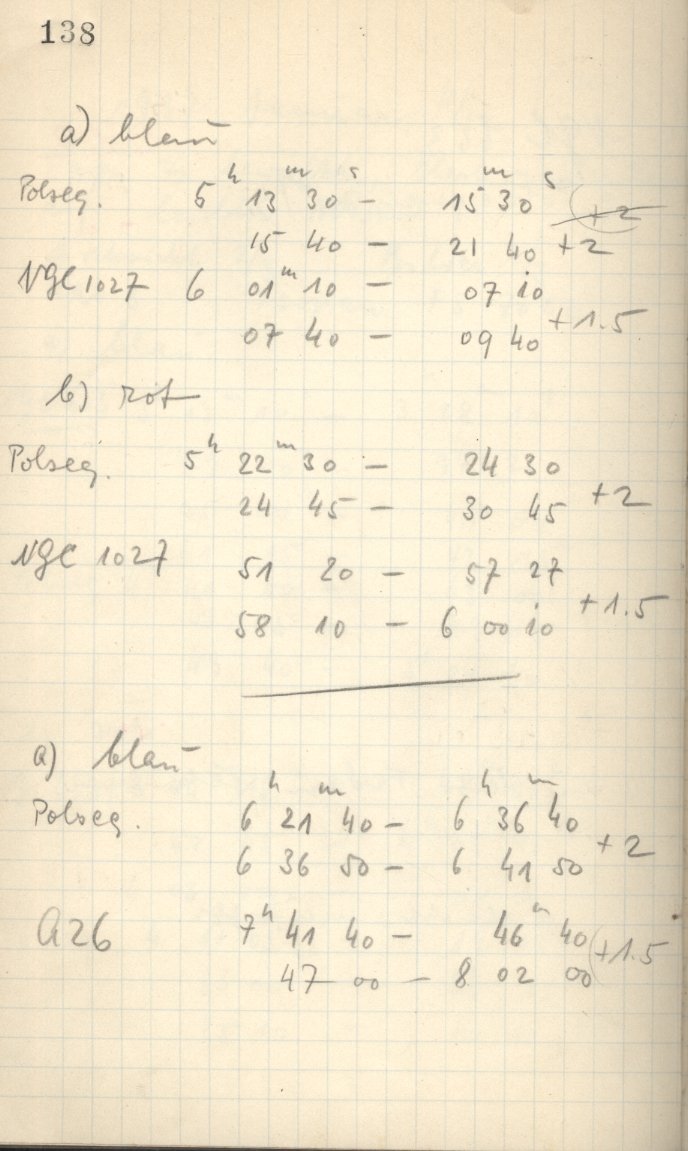 138
a) blau
h m s m s
Polseq. 5 13 30 - 15 30 +2
15 40 - 21 40 +2
NGC 1027 6 01 m 10 - 07 10
07 40 - 09 40 +1.5
b) rot
Polseq. 5 h 22 m 30 - 24 30
24 45 - 30 45 +2
NGC 1027 51 20 - 57 27
58 10 - 6 00 10 +1.5
a) blau
h m h m
Polseq. 6 21 40 - 6 36 40
6 36 50 - 6 41 50 +2
a26 7 h 41 40 - 46 m 40
47 00 - 8 02 00 +1.5